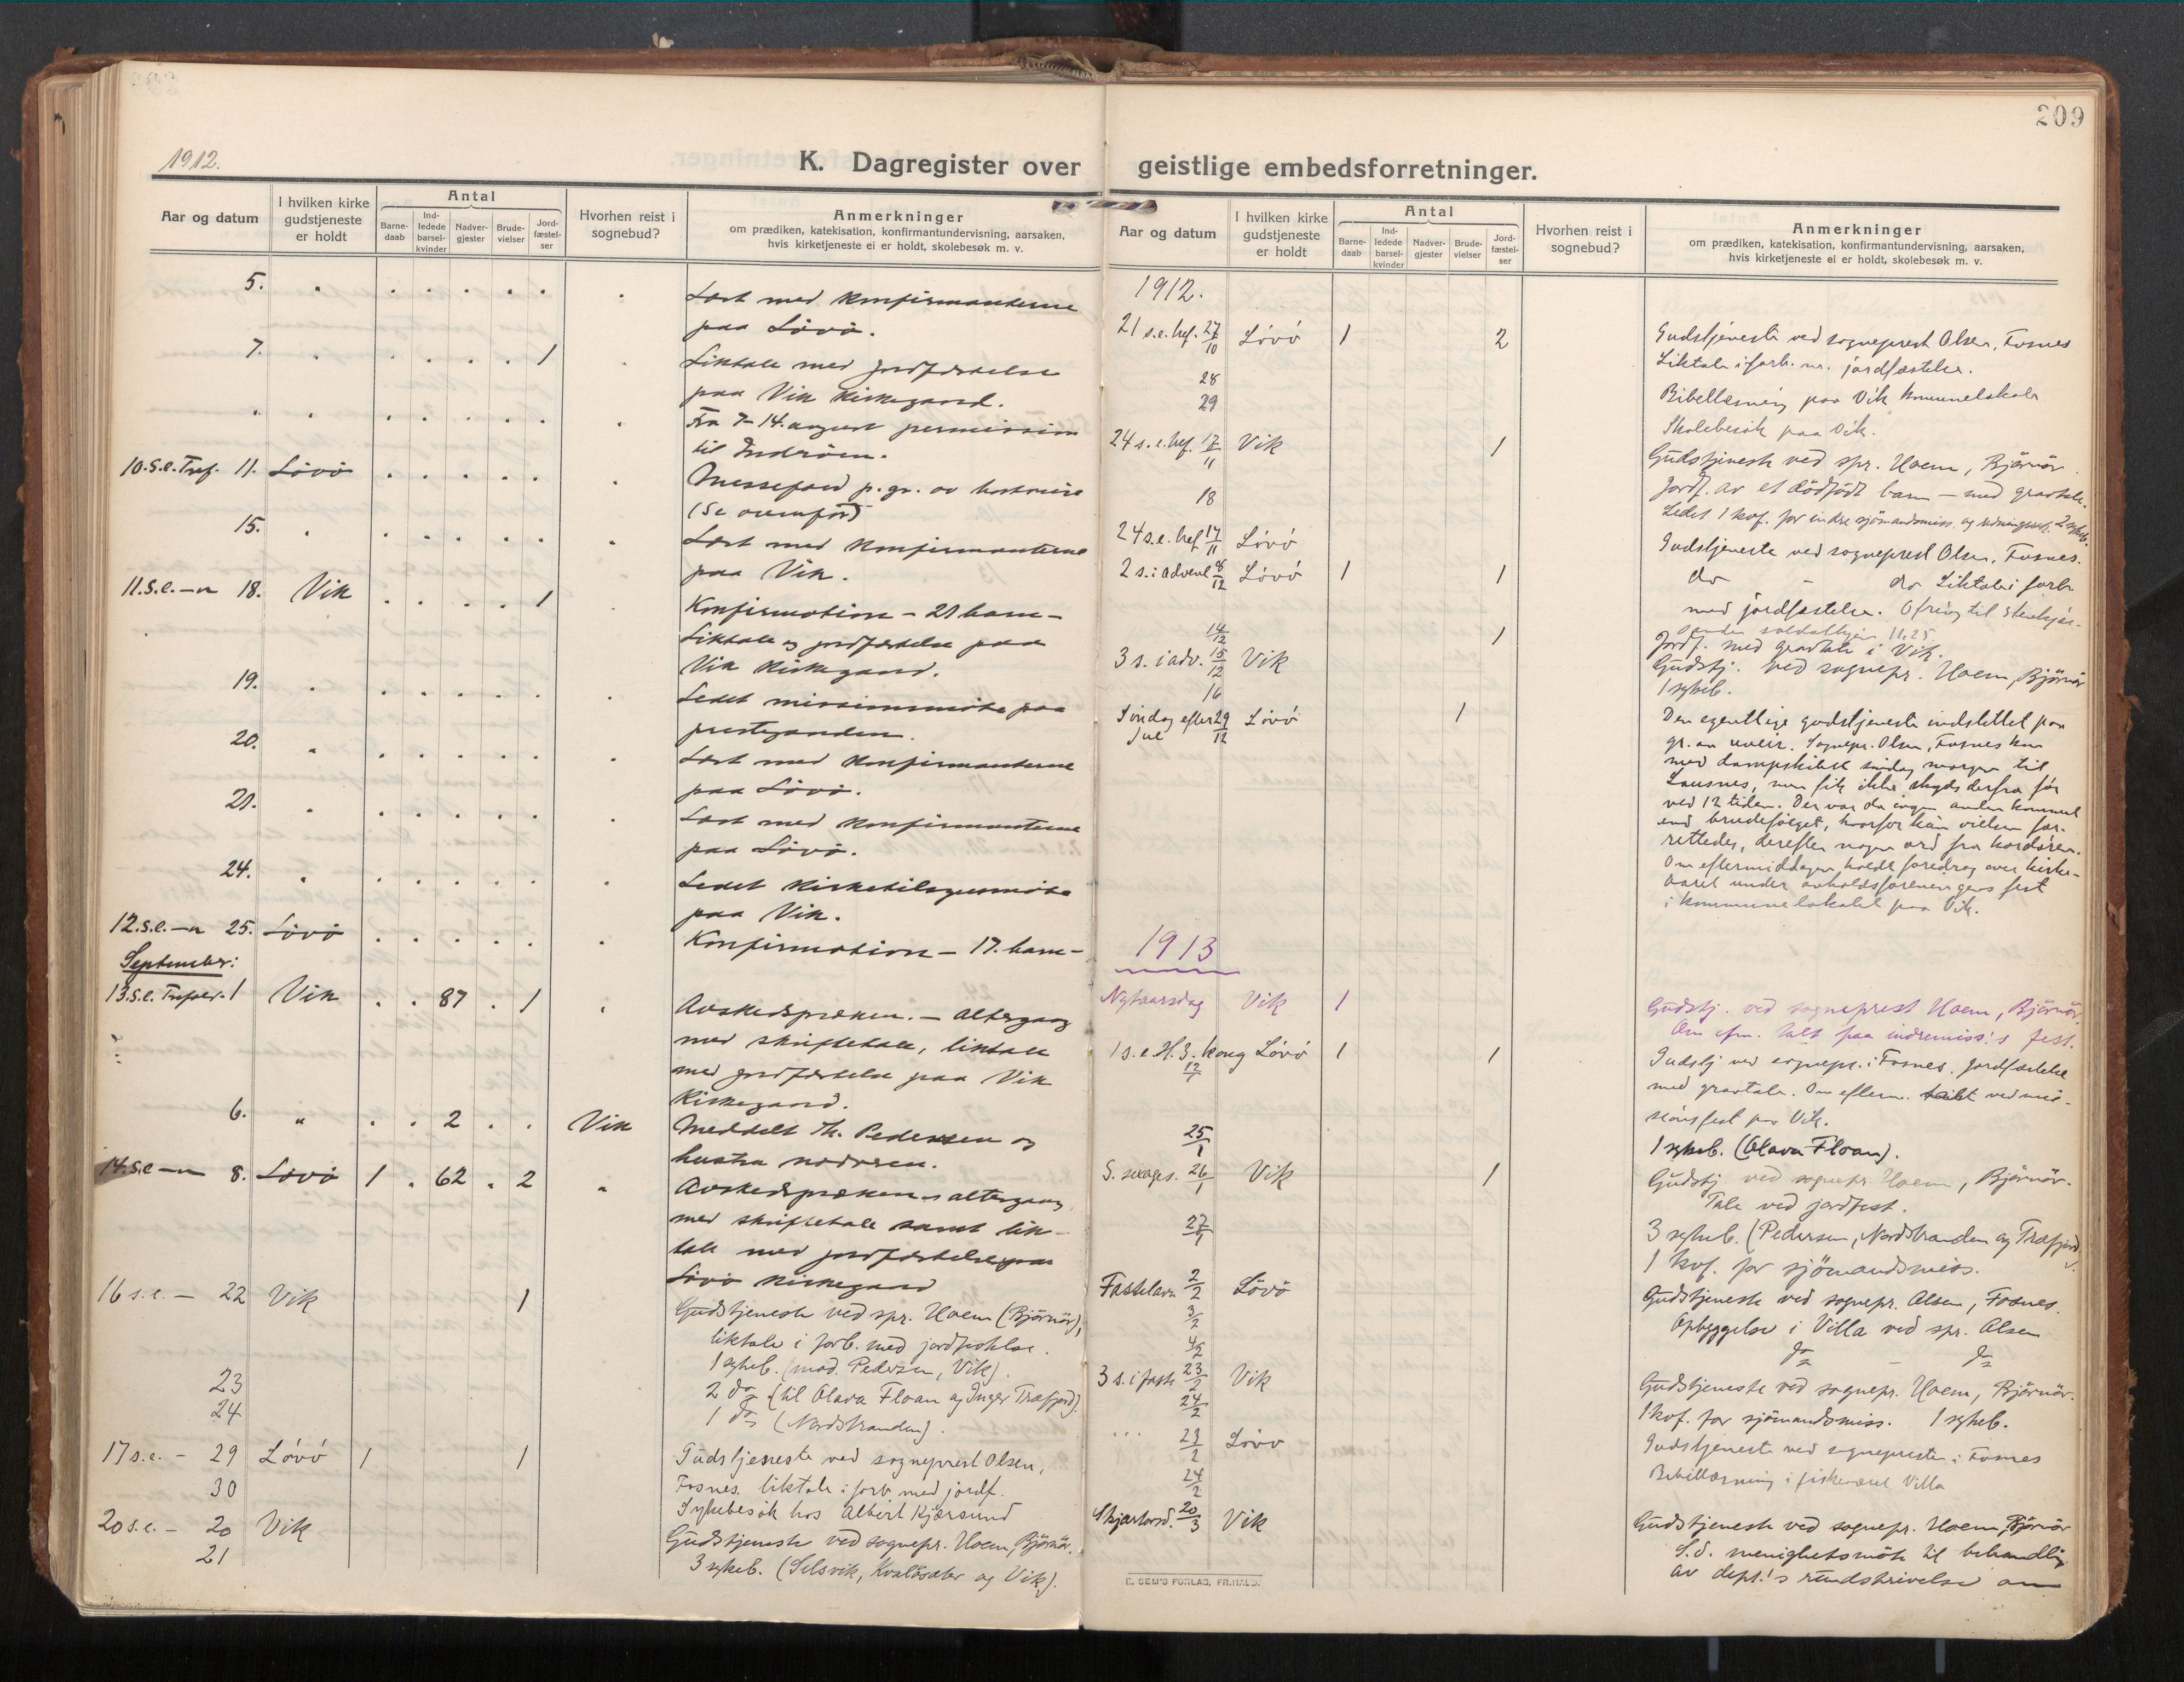 209
1912.
K. Dagregister over geistlige embedsforretninger.
Aar og datum
I hvilken kirke gudstjeneste er holdt
Antal
Barne-daab
Ind-ledede barsel-kvinder
Nadver-gjester
Brude-vielser
Jord-fæstel-ser
Hvorhen reist i sognebud?
Anmerkninger
om prædiken, katekisation, konfirmantundervisning, aarsaken,
hvis kirketjeneste ei er holdt, skolebesøk m. v.
5. Læst med konfirmanterne
paa Lövö.
7. 1 Liktale med jordfæstelse
paa Vik kirkegaard.
Fra 7-14. august permission
til Inderöen.
10.S.e.Tref. 11. Lövö Messefald p. gr. av bortreise
(Se ovenfor)
15. Læst med konfirmanterne
paa Vik.
11.S.e. — " 18. Vik 1 Konfirmation - 21 barn -
Liktale og jordfæstelse paa
Vik kirkegaard.
19. Ledet missionsmöte paa
prestegaarden.
20. Læst med konfirmanterne
paa Lövö.
21. Læst med konfirmanterne
paa Lövö.
24. Ledet kirketilsynsmöte
paa Vik.
12.S.e. — " 25. Lövö Konfirmation - 17. barn -
September:
13.S.e. Trefold. 1 Vik 87 1 Avskedspræken. - Altergang
med skriftetale, liktale
med jordfæstelse paa Vik
Kirkegaard.
6. " 2 Vik Meddelt Th. Pedersen og
hustru nadveren.
14.S.e — " 8. Lövö 1 62 2 Avskedspræken - altergang
med skriftetale samt lik-
tale med jordfæstelse paa
Lövö kirkegaard
16 s.e. — 22 Vik 1 Gudstjeneste ved spr. Hoem (Björnör),
liktale i forb. med jordfæstelse.
1 sykeb. (mad. Pedersen, Vik).
23 2 do (til Olava Floan og Inger Træfjord).
24 1 do (Nordstranden).
17 s.e. - 29 Lövö 1 1 Gudstjeneste ved sogneprest Olsen,
Fosnes. liktale i forb med jordf.
30 Sykebesök hos Albert Kjærsund
20 s.e. - 20 Vik Gudstjeneste ved sognepr. Hoem, Björnör.
21 3 sykeb. (Selsvik, Kvalösæter og Vik).
Aar og datum
I hvilken kirke gudstjeneste er holdt
Antal
Barne-daab
Ind-ledede barsel-kvinder
Nadver-gjester
Brude-vielser
Jord-fæstel-ser
Hvorhen reist i sognebud?
Anmerkninger
om prædiken, katekisation, konfirmantundervisning, aarsaken,
hvis kirketjeneste ei er holdt, skolebesøk m. v.
1912.
21 s.e. tref. 27/10 Lövö 1 2 Gudstjeneste ved sogneprest Olsen, Fosnes
Liktale i forb. m. jordfæstelse.
28 Bibellæsning paa Vik kommunelokale
29 Skolebesök paa Vik.
24 s.e. tref. 17/11 Vik 1 Gudstjeneste ved spr. Hoem, Björnör.
Jordf. av et dödfödt barn — med gravtale.
18 Ledet 1 kvf. for indre sjömandsmiss. og redningssel. 2 sykeb.
24 s.e. tref 17/11 Lövö Gudstjeneste ved sogneprest Olsen, Fosnes.
2 s. i advent 8/12 Lövö 1 1 do - do Liktale i forb.
med jordfæstelse. Ofring til Stenkjær-
14/12 1 Jordf. med gravtale i Vik.
3 s. i adv. 15/12 Vik Gudstj. ved sognepr. Hoem, Björnör
16 1 sykeb.
Söndag efter Jul 29/12 Lövö 1 Den egentlige gudstjeneste indstillet paa
gr. av uveir. Sognepr. Olsen, Fosnes kom
med dampskibet söndag morgen til
Lausnes, men fik ikke skyds derfra för
ved 12 tiden. Der var da ingen anden kommet
end brudefölget, hvorfor kun vielsen for-
rettedes, derefter nogen ord fra kordören.
Om eftermiddagen holdt foredrag over kirke-
aaret under avholdsforeningens fest
i kommunelokalet paa Vik.
1913
Nytaarsdag Vik 1 Gudstj. ved sogneprest Hoem, Björnör.
Om efm. talt paa indremiss.'s fest.
1 s.e. H.3.kong 12/1 Lövö 1 1 Gudstj ved sognepr. i Fosnes. Jordfæstelse
med gravtale. Om efterm. talt ved mis-
sionsfest paa Vik.
25/1 1 sykeb. (Olava Floan).
S. sexages. 26/1 Vik 1 Gudstj ved sognepr Hoem, Björnör.
Tale ved jordfest.
27/1 3 sykeb. (Pedersen, Nordstranden og Træfjord).
1 kvf. for sjömandsmiss.
Fastelavn 2/2 Lövö Gudstjeneste ved sognepr. Olsen, Fosnes.
3/2 Opbyggelse i Villa ved spr. Olsen
4/2 do - do
3 s. i faste 23/2 Vik Gudstjeneste ved sognepr. Hoem, Björnör.
24/2 1 kvf. for sjömandsmiss. 1 sykeb.
" " " 23/2 Lövö Gudstjeneste ved sognepresten i Fosnes
24/2 Bibellæsning i fiskeværet Villa
Skjærtorsd. 20/3 Vik Gudstjeneste ved sognepr. Hoem, Björnör
S.d. menighetsmöte til behandling
av dept.'s rundskrivelse om
E. SEM'S FORLAG, FR.HALD.